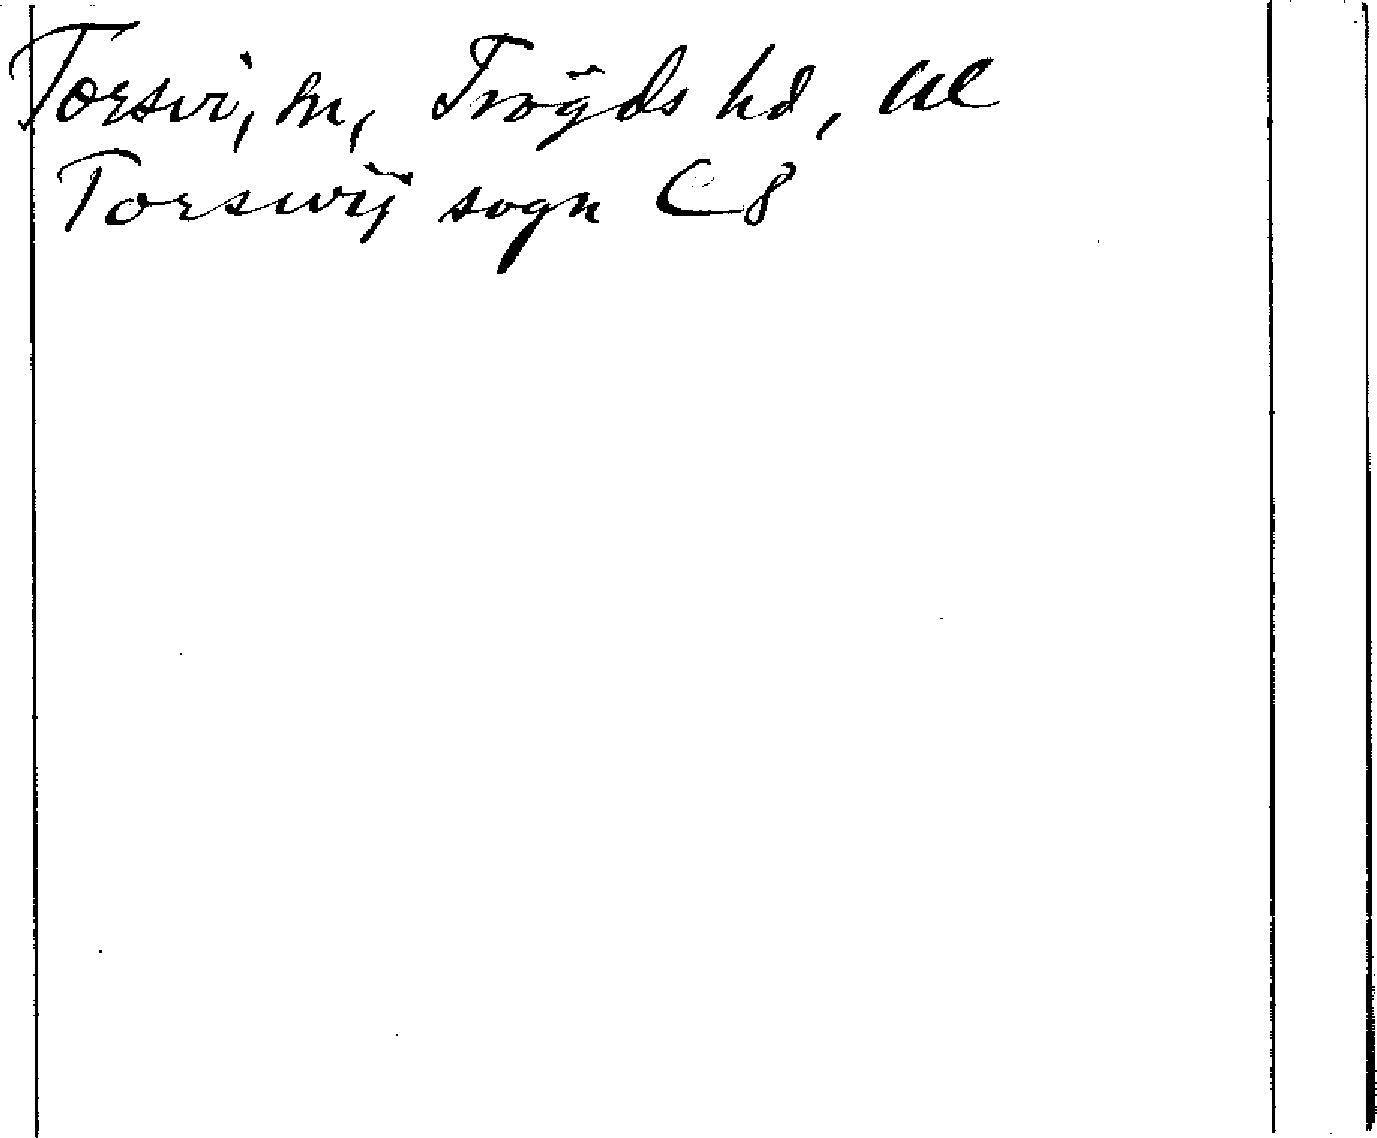 Torsvi, sn, Trögds hd, Ul
Torswij sogn C8